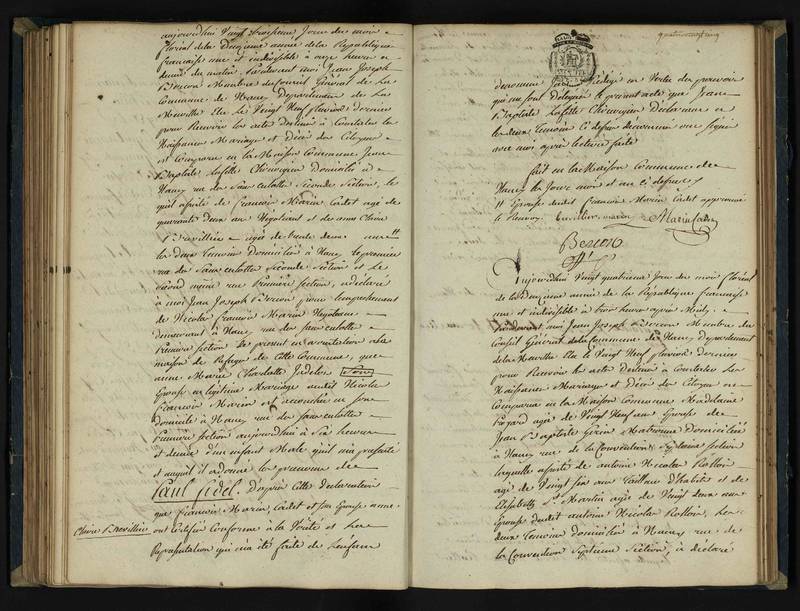 aujourdhui Vingt troisieme jour du mois
floréal de la Deuxieme année de la Republique
française une et indivisible à onze heures et
demie du matin, Pardevant moi Jean Joseph
Bercon Membre du Conseil Général de La
Commune de Nancy Departement de La
Meurthe Elu Le Vingt Neuf pluviose dernier
pour Recevoir les actes Destinés à Constater les
Naissances Mariages et Décès des Citoyens
est comparu en la Maison Commune Jean
Baptiste Lafitte Chirurgien Domicilié à
Nancy rue des Sans culottes Seconde Section, le
quel assisté de françois Marin Cadet agé de
quarante deux ans Négotiant et de anne Claire
Brevillier agée de trente deux ans
les deux Temoins Domiciliés à Nancy le premier
rue des Sans culottes Seconde Section et la
Seconde même rue Premiere Section, a déclaré
à moi Jean Joseph Bercon pour l'empechement
de Nicolas françois Marin Négotiant
demeurant à Nancy rue des sans culottes
Premiere Section Le present en arrestation à la
maison de Refuge de cette Commune, que
anne Marie Charlotte
Epouse en légitime Mariage audit Nicolas
François Marin est accouchée en son
domicile à Nancy rue des sans culottes
Premiere Section aujourdhui à Six heures
et demie d'un enfant Male qu'il m'a presenté
et auquel il a donné les prenoms de
Paul fidel. D'après cette Déclaration
que françois Marin Cadet et son Epouse anne
Claire Brevillier ont Certifié Conforme à la Vérité et La
Représentation qui m'a été faite de L'enfant
denommé j'ai Rédigé en Vertu des pouvoirs
qui me sont Délégués le present acte que Jean
Baptiste Lafitte Chirurgien Déclarant et
les deux Temoins Ci dessus dénommés ont Signé
avec moi après lecture faite
fait en la Maison Commune de
Nancy les Jour mois et an ci dessus
Epouse dudit françois Marin Cadet approuvé
le Renvoy. Marin Cadet
Bercon
Aujourdhui Vingt quatrieme Jour du mois floréal
de la Deuxieme année de la République française
une et indivisible à trois heures après Midy,
pardevant moi Jean Joseph Bercon Membre du
Conseil Général de la Commune de Nancy Departement
de la Meurthe Elu le Vingt Neuf pluviose Dernier
pour Recevoir les actes Destinés à Constater Les
Naissances Mariages et Décès des Citoyens est
Comparue en la Maison Commune Madelaine
agée de Vingt Neuf ans Epouse de
Jean Baptiste Matronne Domiciliée
à Nancy rue de la Convention Septieme Section
laquelle assistée de antoine Nicolas Rollin
agé de Vingt six ans Tailleur D'habits et de
Elisabeth St. Martin agée de Vingt deux ans
Epouse dudit antoine Nicolas Rollin, Les
deux Temoins Domiciliés à Nancy rue de
la Convention Septieme Section, a déclaré